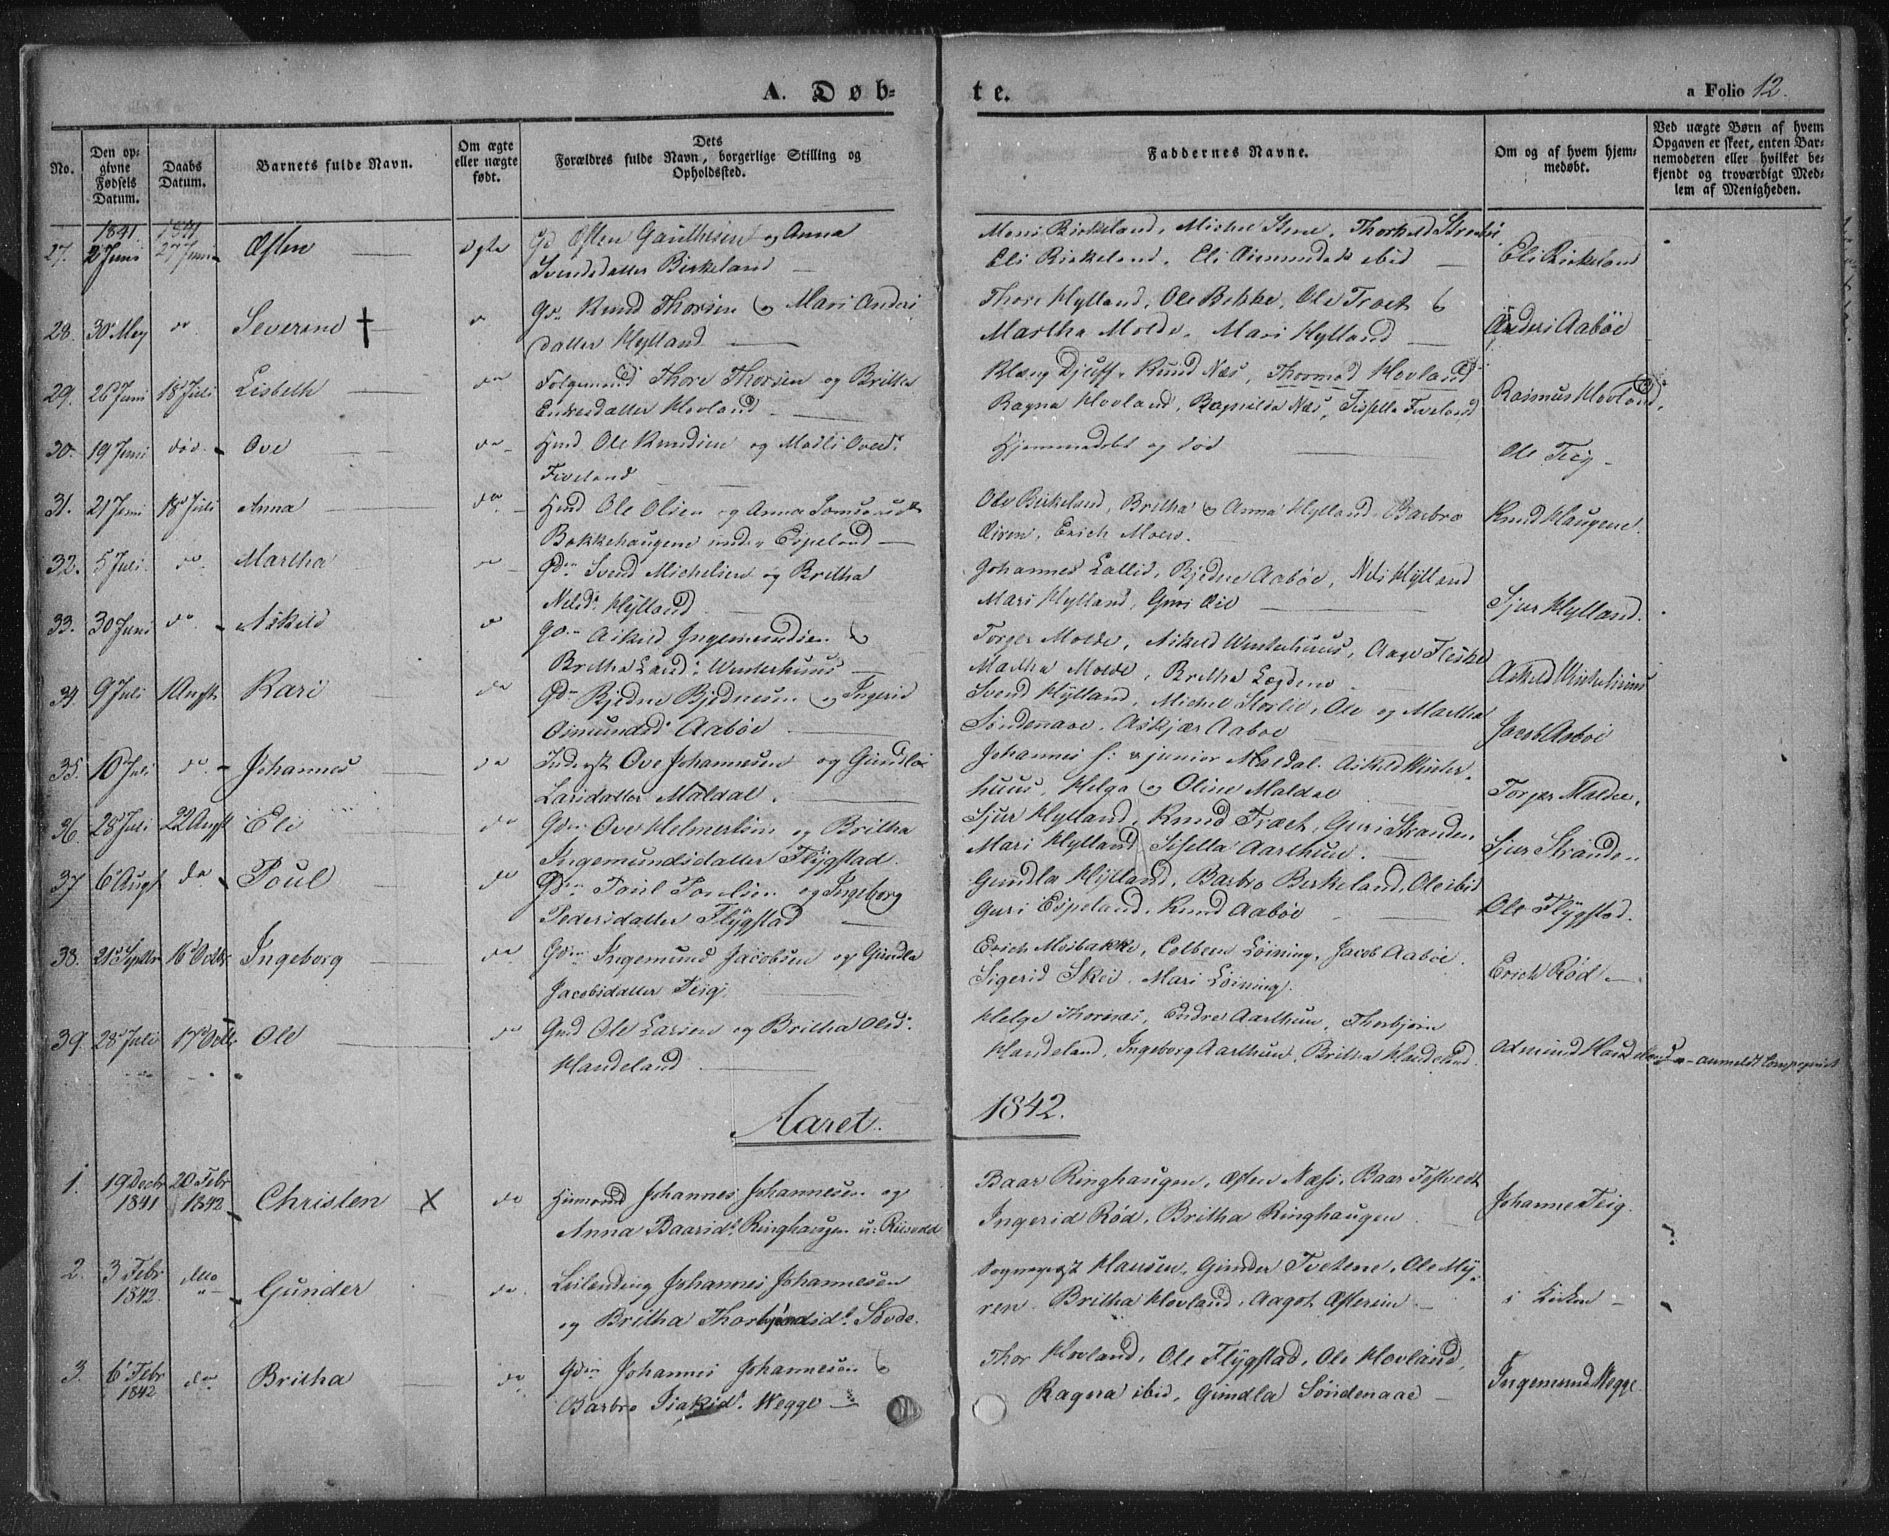 A. Døb-
te.
a Folio 12.
No.
Den opgivne Fødsels Datum.
Daabs Datum.
Barnets fulde Navn.
Om ægte eller uægte født.
Dets Forældres fulde Navn, borgerlige Stilling og Opholdssted.
Faddernes Navne.
Om og af hvem hjemmedøbt.
Ved uægte Børn af hvem Opgaven er skeet, enten Barnemoderen eller hvilket bekjendt og troværdigt Medlem af Menigheden.
1841 1841
27. 2 Juni 27 Juni Østen ægte Gd Østen Gauthesen og Anna
Svendsdatter Birkeland
Mons Birkeland, Michel Stene, Thorkild
Eli Birkeland, Eli ibid
Eli Birkeland
28. 30 May do. Severine † Gdm Knud Thorsen & Mari Anders
datter Hylland
Thore Hylland, Ole Bekke, Ole Traet &
Martha Molde, Mari Hylland
Anders Aabøe
29. 26 Juni 18 Juli Lisbeth do Folgemand Thore Thorsen og Britha
datter Hovland
Knud Næs, Thormod Hovland
Ragna Hovland, Ragnilda Næs, Fiveland
Rasmus Hovland
30. 19 Juni død Ove do Hmd Ole Knudsen og Madli Oved.
Fiveland
Hjemmedøbt og død
Ole Teig
31. 21 Juni 18 Juli Anna do Hmd Ole Olsen og Anna
Bakkehaugene under Espeland
Ole Birkeland, Britha & Anna Hylland, Barbro
Erich
Knud Haugene
32. 5 Juli do. Martha Gdm Svend Michelsen og Britha
Nelsd. Hylland
Johannes Lallid, Bjedne Aabøe, Nels Hylland
Mari Hylland, Guri
Sjur Hylland.
33. 30 Juni do. Askild do Gdm Askild Ingemundsen &
Britha Winterhuus
Torger Molde, Askild Winterhuus, Aage Fleske
Martha Molde, Britha
Askild Winterhuus
34. 9 Juli 1 Augst Kari do Gdm Bjedne Bjednesen & Ingerid
Osmundsd. Aabøe
Svend Hylland, Michel Størlie, Ole og Martha
Søndenaae, Askjær Aabøe
Jacob Aabøe
35. 10 Juli do. Johannes do Inderst Ove Johannesen og Gundla
Larsdatter Maldal.
Johannes s: & junior Maldal, Askild Winter-
huus, Helga & Oline Maldal
Torger Maldal.
36. 28 Juli 22 Augst Eli do Gdm Ove Helmersen og Britha
Ingemundsdatter Flygstad.
Sjur Hylland, Knud Træet, Guri Stranden
Mari Hylland, Sisella Aarthun.
Sjur Stranden
37 6 Augst do Poul do Gdm Poul Poulsen og Ingeborg
Pedersdatter Flygstad
Gundla Hylland, Barbro Birkeland, Ole ibid
Guri Espeland, Knud Aabøe
Ole Flygstad.
38. 21 Septbr 16 Octbr Ingeborg do Gdm Ingemund Jacobsen og Gundla
Jacobsdatter Teig.
Erich Mosbakke, Colbeen Løining, Jacob Aabøe.
Sigerid Skei, Mari Løining.
Erich Rød
39. 28 Juli 17 Octb. Ole do Gmd Ole Larsen og Britha Olsd.
Handeland
Helge Thornæs, Endre Aarthun, Thorbjørn
Handeland, Ingeborg Aarthun, Britha Handeland.
Admund Handeland anmeldt
Aaret 1842.
1. 19 Decbr 1841 20 Febr 1842 Christen X do Huusmand Johannes Johannesen og
Anna Baarsd. Ringhaugen u: Riisvold
Baar Ringhaugen, Østen Næss, Baar Tostvedt
Ingerid Rød, Britha Ringhaugen
Johannes Teig.
2. 3 Febr 1842. do Gunder do. Leilending Johannes Johannesen
og Britha Thorbjørnsd. Søvde.
Sognepræst Hansen, Gunder Tvetene, Ole My-
ren. Britha Hovland, Aagot
i Kirken
3. 6 Febr 1842 do Britha do. Gdm Johannes Johannesen &
Barbro Isaksd. Hegge
Thor Hovland, Ole Flygstad, Ole Hovland,
Ragna ibid, Gundla Søndenaae
Ingemund Hegge